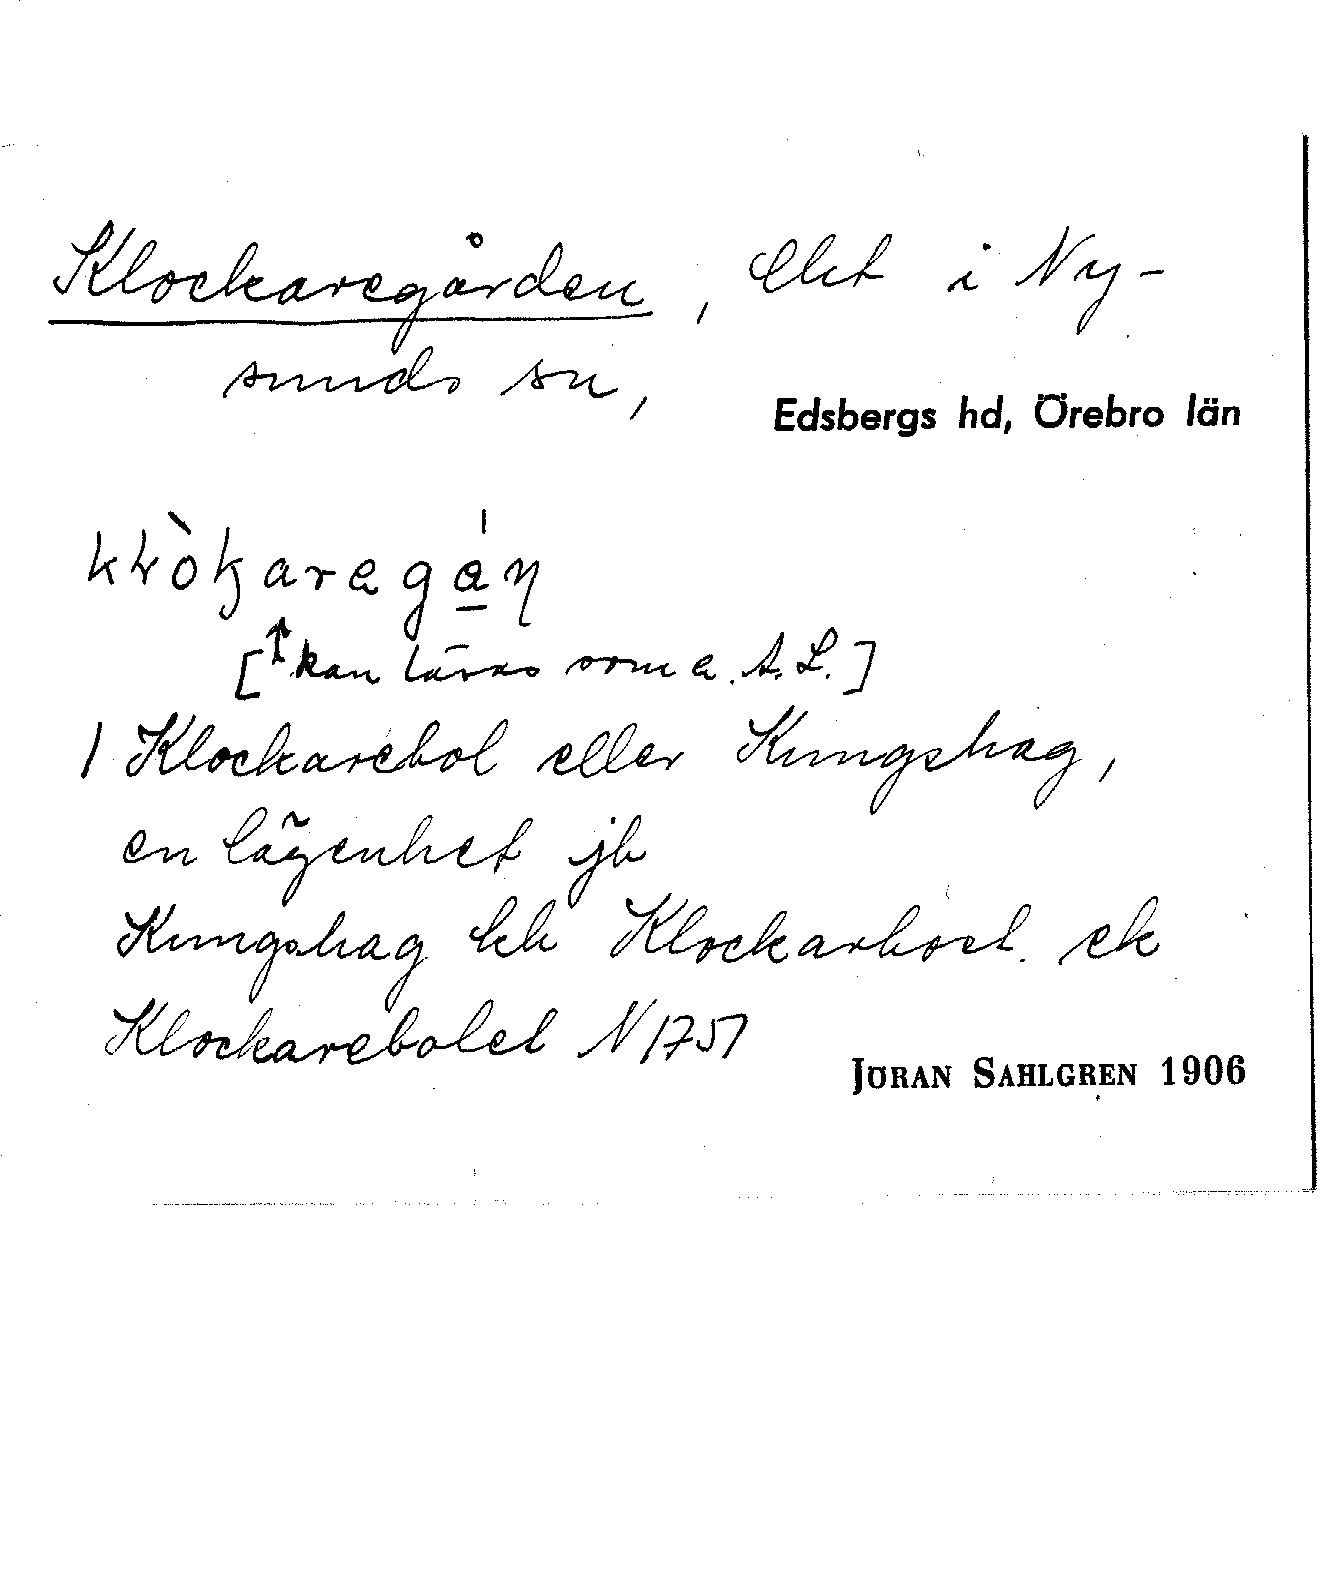 Klockaregården, lht i Ny-
sunds sn,
Edsbergs hd, Örebro län
[kan läsas som a. A.L.]
1 Klockarebol eller Kungshag,
en lägenhet jb
Kungshag kb Klockarboel. ek
Klockarebolet N 1751
JÖRAN SAHLGREN 1906